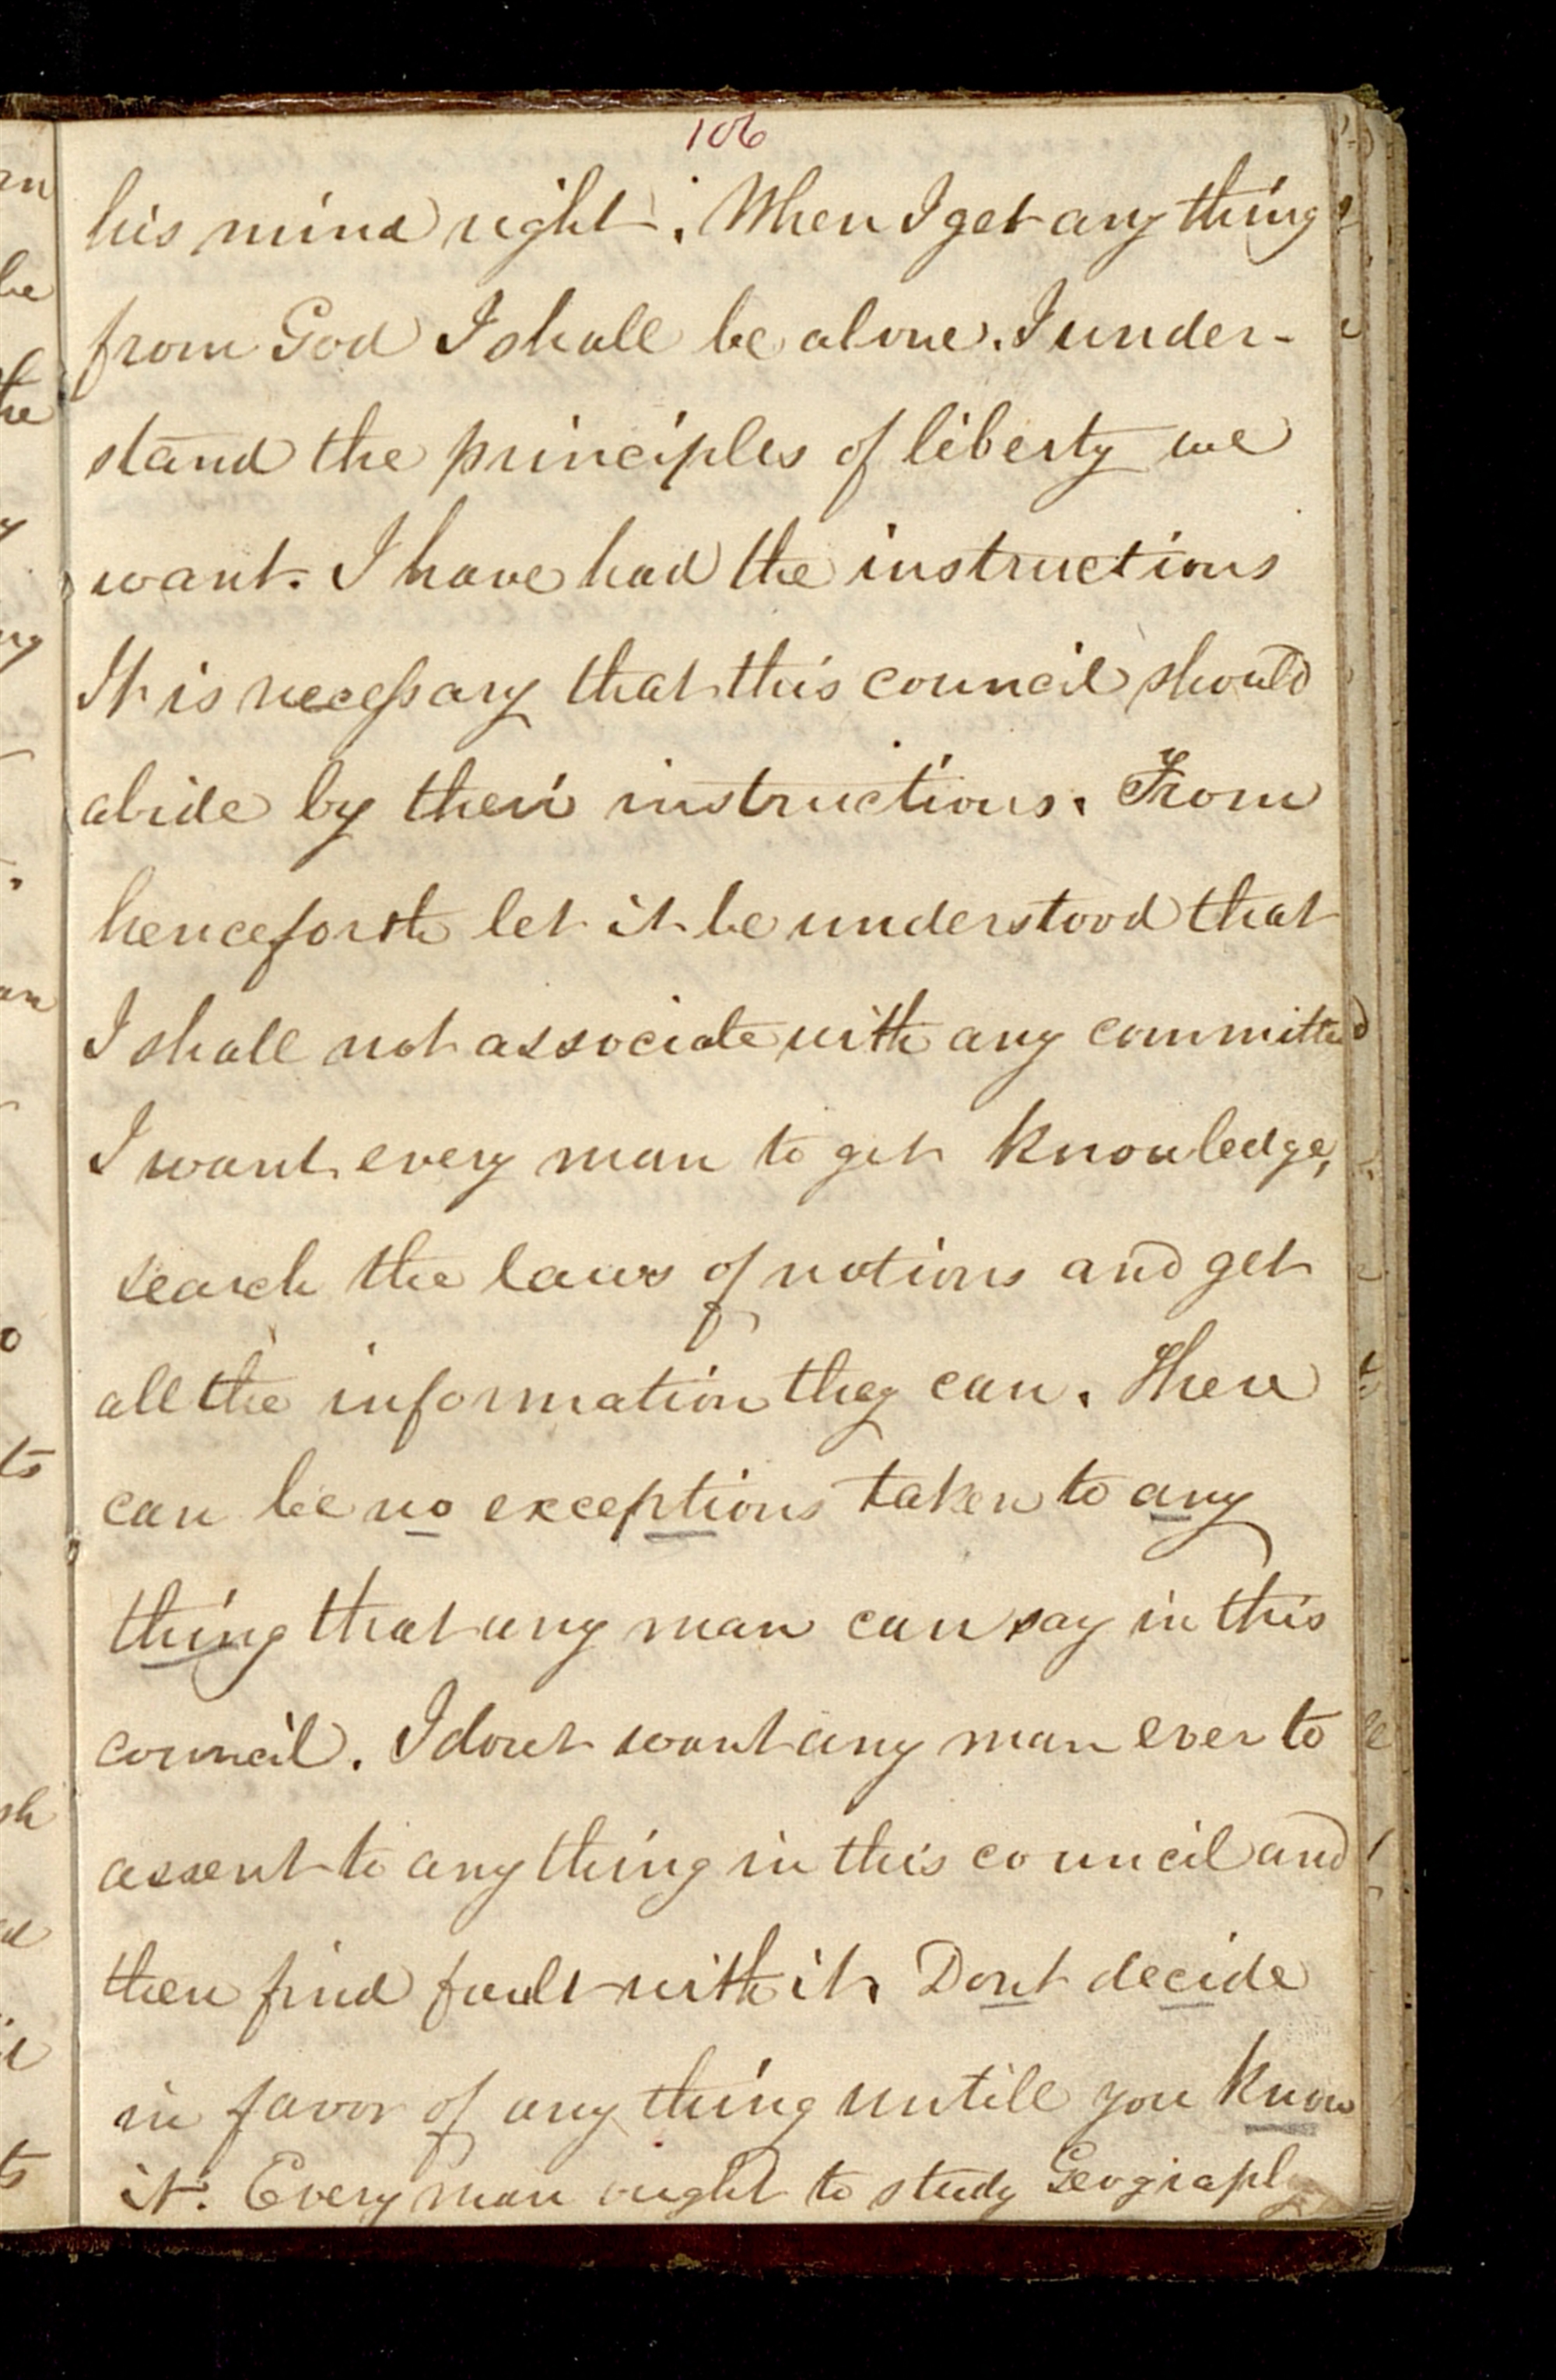 106
his mind right. When I get any thing
from God I shall be alone. I under-
stand the principles of liberty we
want. I have had the instructions
It is necessary that this council should
abide by their instructions. From
henceforth let it be understood that
I shall not associate with any committee
I want every man to get knowledge,
search the laws of nations and get
all the information they can. There
can be no exceptions taken to any
thing that any man can say in this
council. I dont want any man ever to
assent to any thing in this council and
then find fault with it. Dont decide
in favor of any thing untill you know
it. Every man ought to study Geography